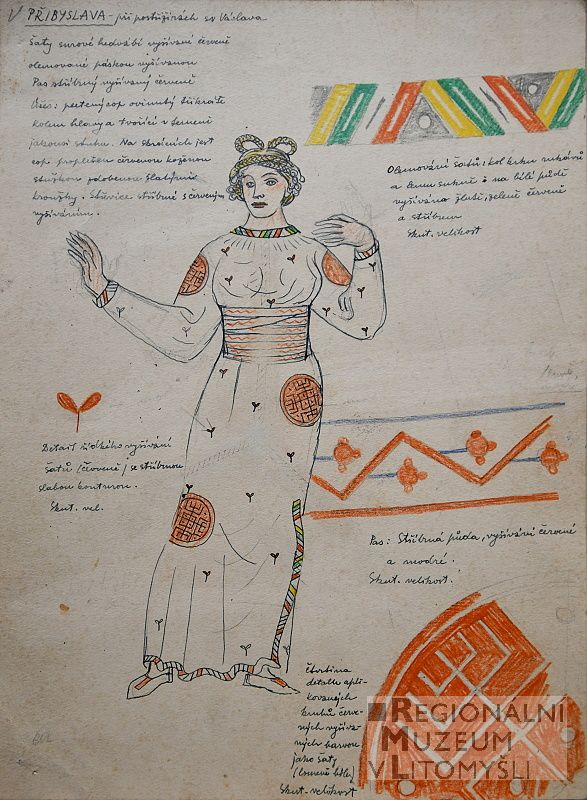 V PŘIBYSLAVA - při postřižinách sv Václava
Šaty surové hedvábí vyšívání červeně
olemované páskou vyšívanou
Pas stříbrný vyšívaný červeně
Účes: pletený cop ovinutý tříkráte
kolem hlavy a tvořící v temeni
jakousi stuhu. Na skráních jest
cop propleten červenou koženou
stužkou zdobenou zlatými
kroužky. Střevíce stříbrné s červeným
vyšíváním.
Olemování šatů: kol krku rukávů
a lemu sukně: na bílé půdě
vyšíváno žlutě, zeleně červeně
a stříbrem
Skut. velikost
Detail řídkého vyšívání
šatů /červeně/ se stříbrnou
slabou konturou.
Skut. vel.
Pas: Stříbrná půda, vyšívání červené
a modré.
Skut. velikost.
Čtvrtina
detailu apli-
kovaných
kruhů červe-
ných vyšíva-
ných barvou
jako šaty
Skut. velikost
REGIONALNI
MUZEUM
V LITOMYŠLI